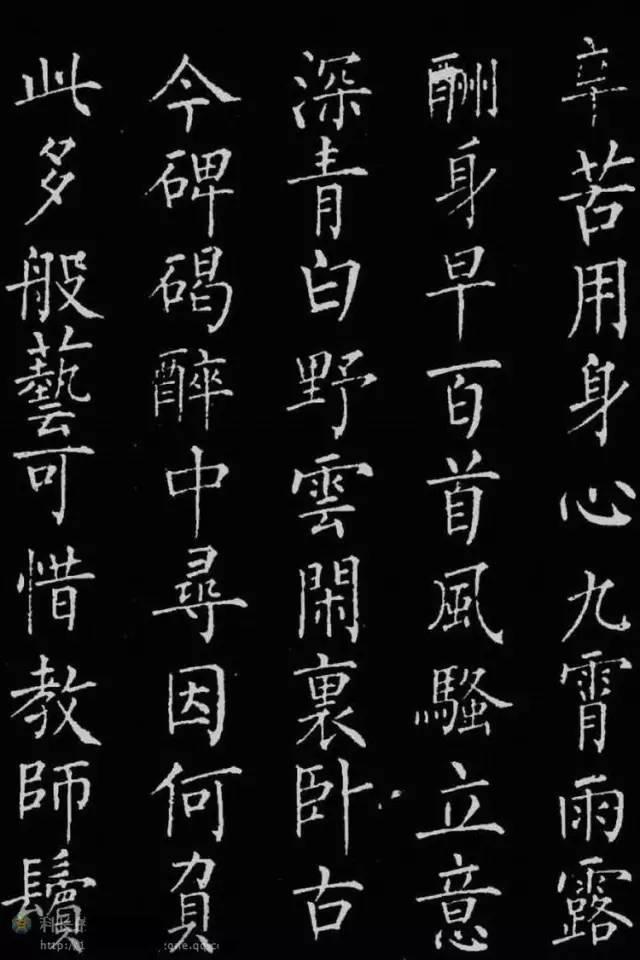 辛苦用身心九霄雨露
酬身早百首風騷立意
深青白野雲閑裏卧古
今碑碣醉中尋因何負
此多般藝可惜教師鬢
http://1
one.qq.co